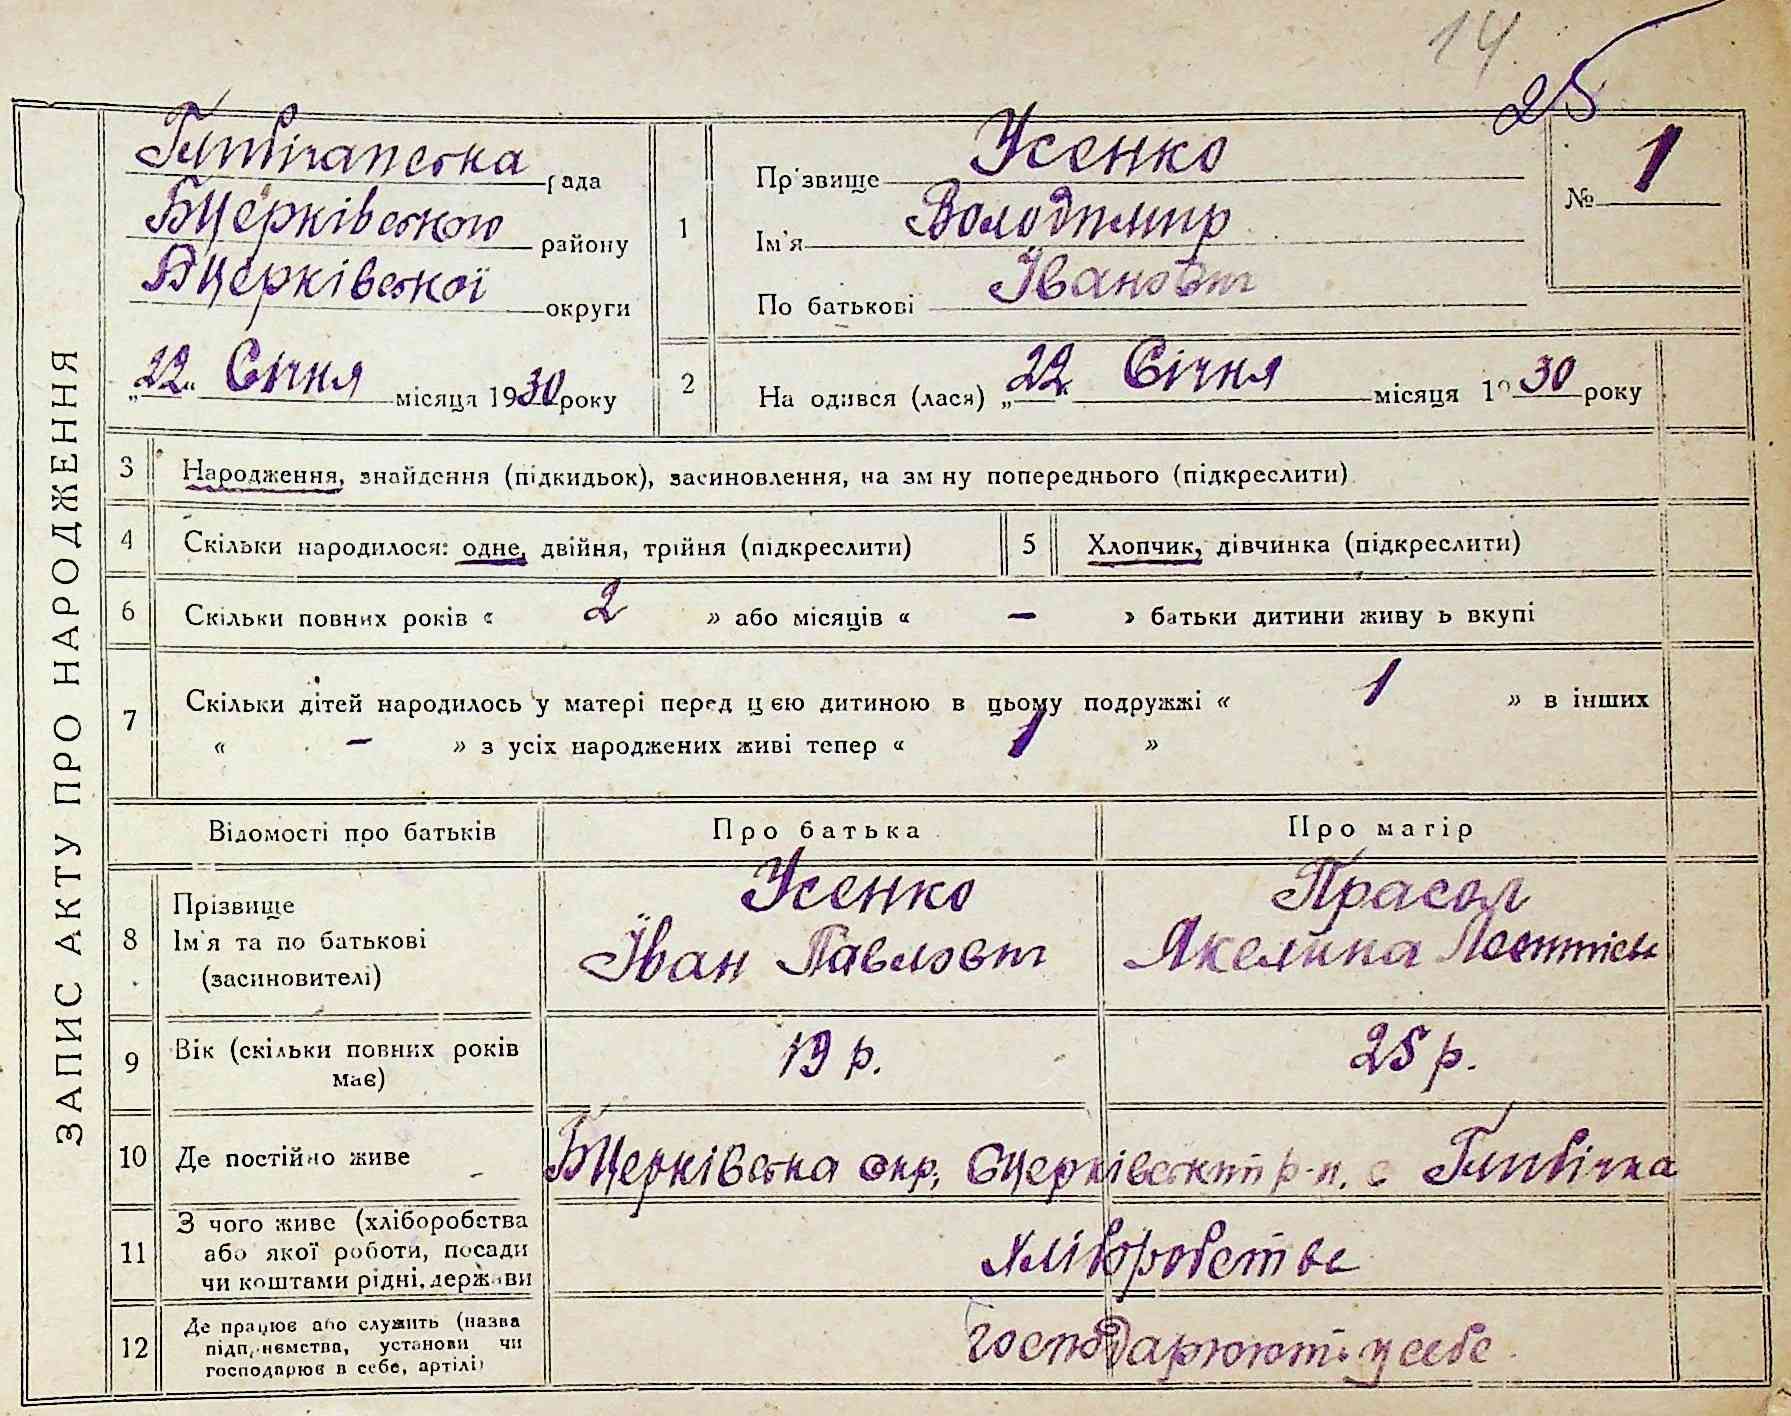 14
25
ЗАПИС АКТУ ПРО НАРОДЖЕННЯ
Глибічанська рада
БЦерківського району
БЦерківської округи
„22“ Січня місяця 1930 року
1
Пр звище Усенко
Ім'я Володимир
По батькові Іванович
№ 1
2 На одився (лася) „22“ Січня місяця 1930 року
3 Народження, знайдення (підкидьок), засиновлення, на зм ну попереднього (підкреслити)
4 Скільки народилося: одне, двійня, трійня (підкреслити) 5 Хлопчик, дівчинка (підкреслити)
6 Скільки повних років « 2 » або місяців « – » батьки дитини живу ь вкупі
7 Скільки дітей народилось у матері перед цією дитиною в цьому подружжі « 1 » в інших
« – » з усіх народжених живі тепер « 1 »
Відомості про батьків Про батька Про матір
8 Прізвище
Ім'я та по батькові
(засиновителі)
Усенко
Іван Павлович
Прасол
Якелина
9 Вік (скільки повних років
має)
19 р. 25 р.
10 Де постійно живе БЦерківська окр, БЦерківський р-н. с Глибічка
11 З чого живе (хліборобства
або якої роботи, посади
чи коштами рідні, держави
хліборобство
12 Де працює або служить (назва
підприємства, установи чи
господарює в себе, артілі)
Господарюють у себе.